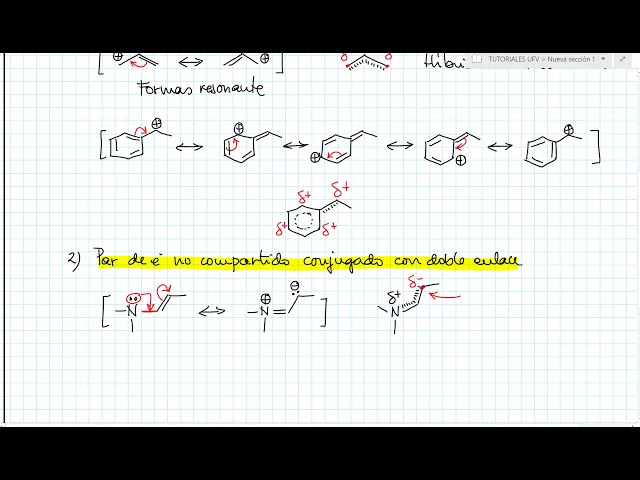 TUTORIALES UFV > Nueva sección 1
⊕ ⊕ δ δ
Formas resonante
⊕ ⊕ ⊕ ⊕ ⊕
δ+ δ+ δ+ δ+
2) Par de é no compartido conjugado con doble enlace
N ⊕ N ⊖ δ+ N δ-